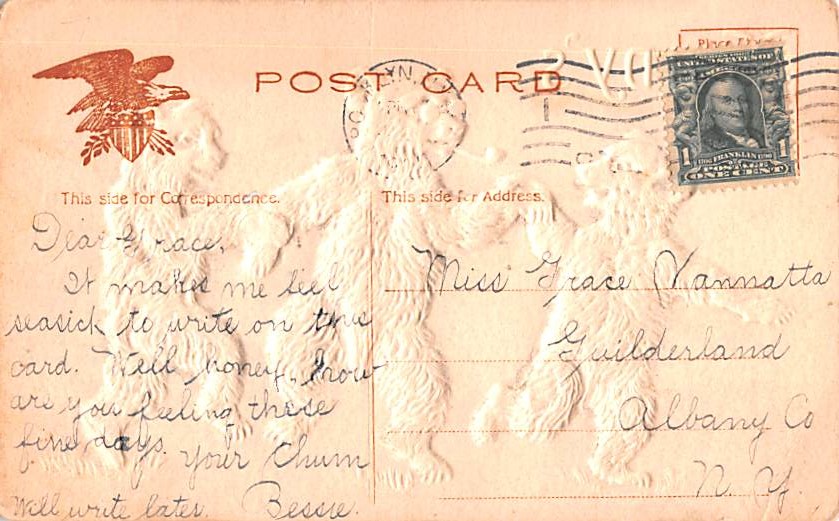 POST CARD
This side for Correspondence.
This side for Address.
Dear Grace,
It makes me feel
seasick to write on this
card. Well honey, how
are you feeling these
fine days. Your Chum
Will write later. Bessie.
Miss Grace Vannatta
Guilderland
Albany Co
N. Y.
Place
UNITED STATES OF
1 FRANKLIN 1
POSTAGE
ONE CENT